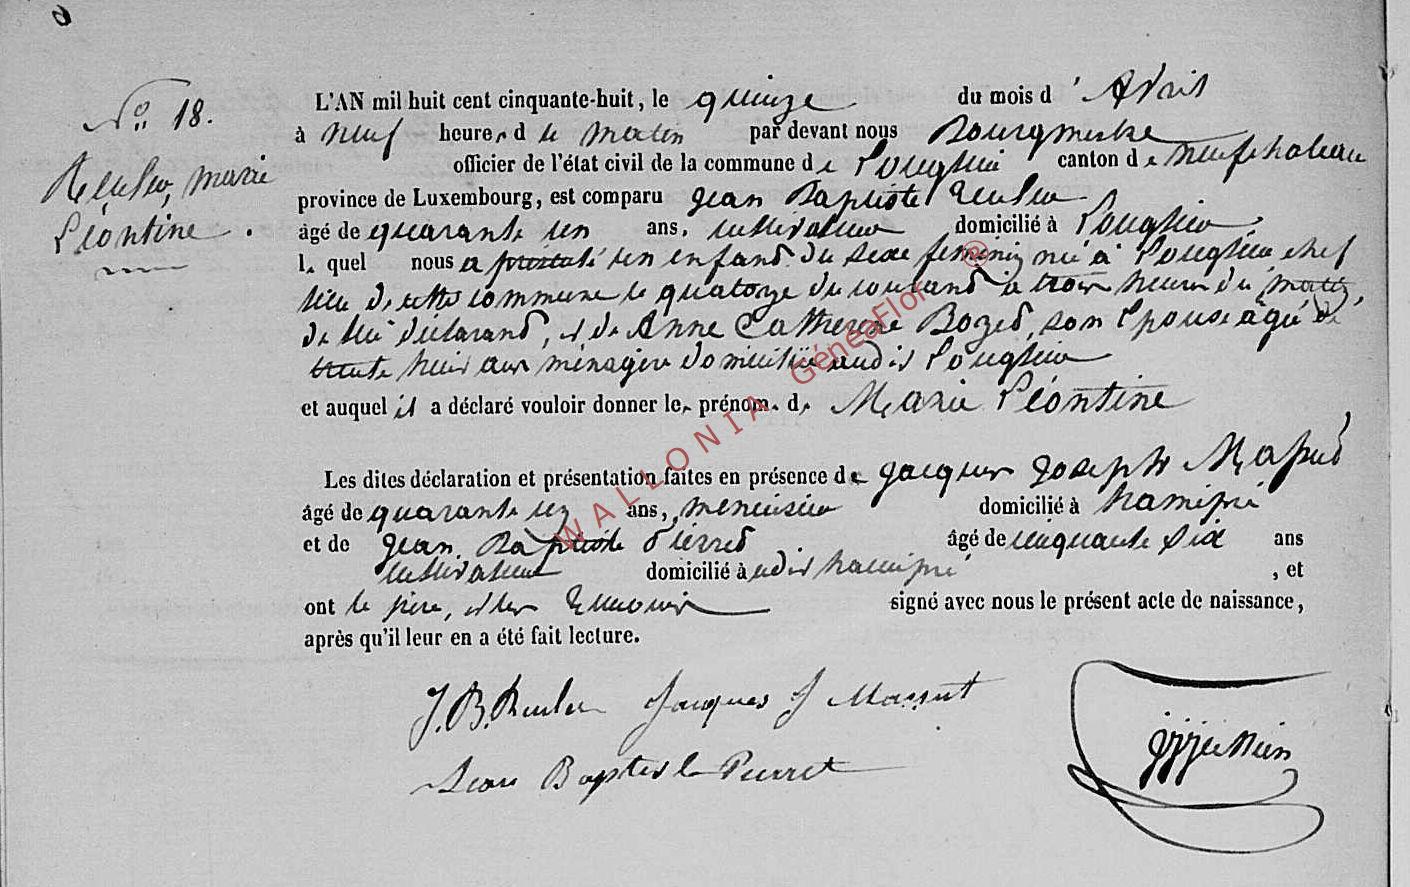 6
N° 18.
Reuler, marie
Léontine.
L'AN mil huit cent cinquante-huit, le quinze du mois d'Avril
à neuf heures d le matin par devant nous Bourgmestre
officier de l'état civil de la commune de Longlier canton de neufchateau
province de Luxembourg, est comparu Jean Baptiste Reuler
âgé de quarante un ans, cultivateur domicilié à Longlier
lequel nous a présenté un enfant du sexe feminin né à Longlier chef
lieu de cette commune le quatorze du courand à trois heures du matin,
de lui declarand, et de Anne Catherine Bozed, son Epouse âgé de
trente huit ans ménagère domiciliée audis Longlier
et auquel il a déclaré vouloir donner les prénoms de Marie Léontine
Les dites déclaration et présentation faites en présence de Jacques Joseph
âgé de quarante un ans, menuisier domicilié à hamipré
et de Jean Baptiste Pierred âgé de cinquante six ans
cultivateur domicilié à udis hamipré, et
ont le père, et les temoins signé avec nous le présent acte de naissance,
après qu'il leur en a été fait lecture.
J. B. Reuler Jacques J Massut
Jean Baptiste Pierret
WALLONIA GénéaFlor ®